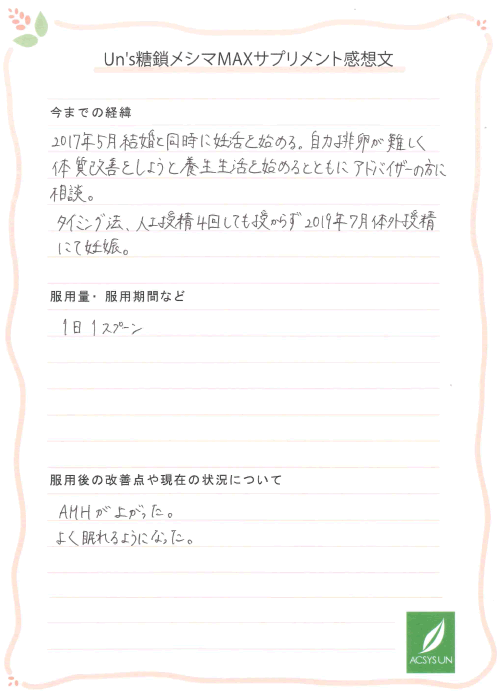 Un's糖鎖メシマMAXサプリメント感想文
今までの経緯
2017年5月結婚と同時に妊活を始める。自力排卵が難しく
体質改善をしようと養生生活を始めるとともにアドバイザーの方に
相談。
タイミング法、人工授精4回しても授からず2019年7月体外授精
にて妊娠。
服用量・服用期間など
1日1スプーン
服用後の改善点や現在の状況について
AMHが上がった。
よく眠れるようになった。
ACSYS UN